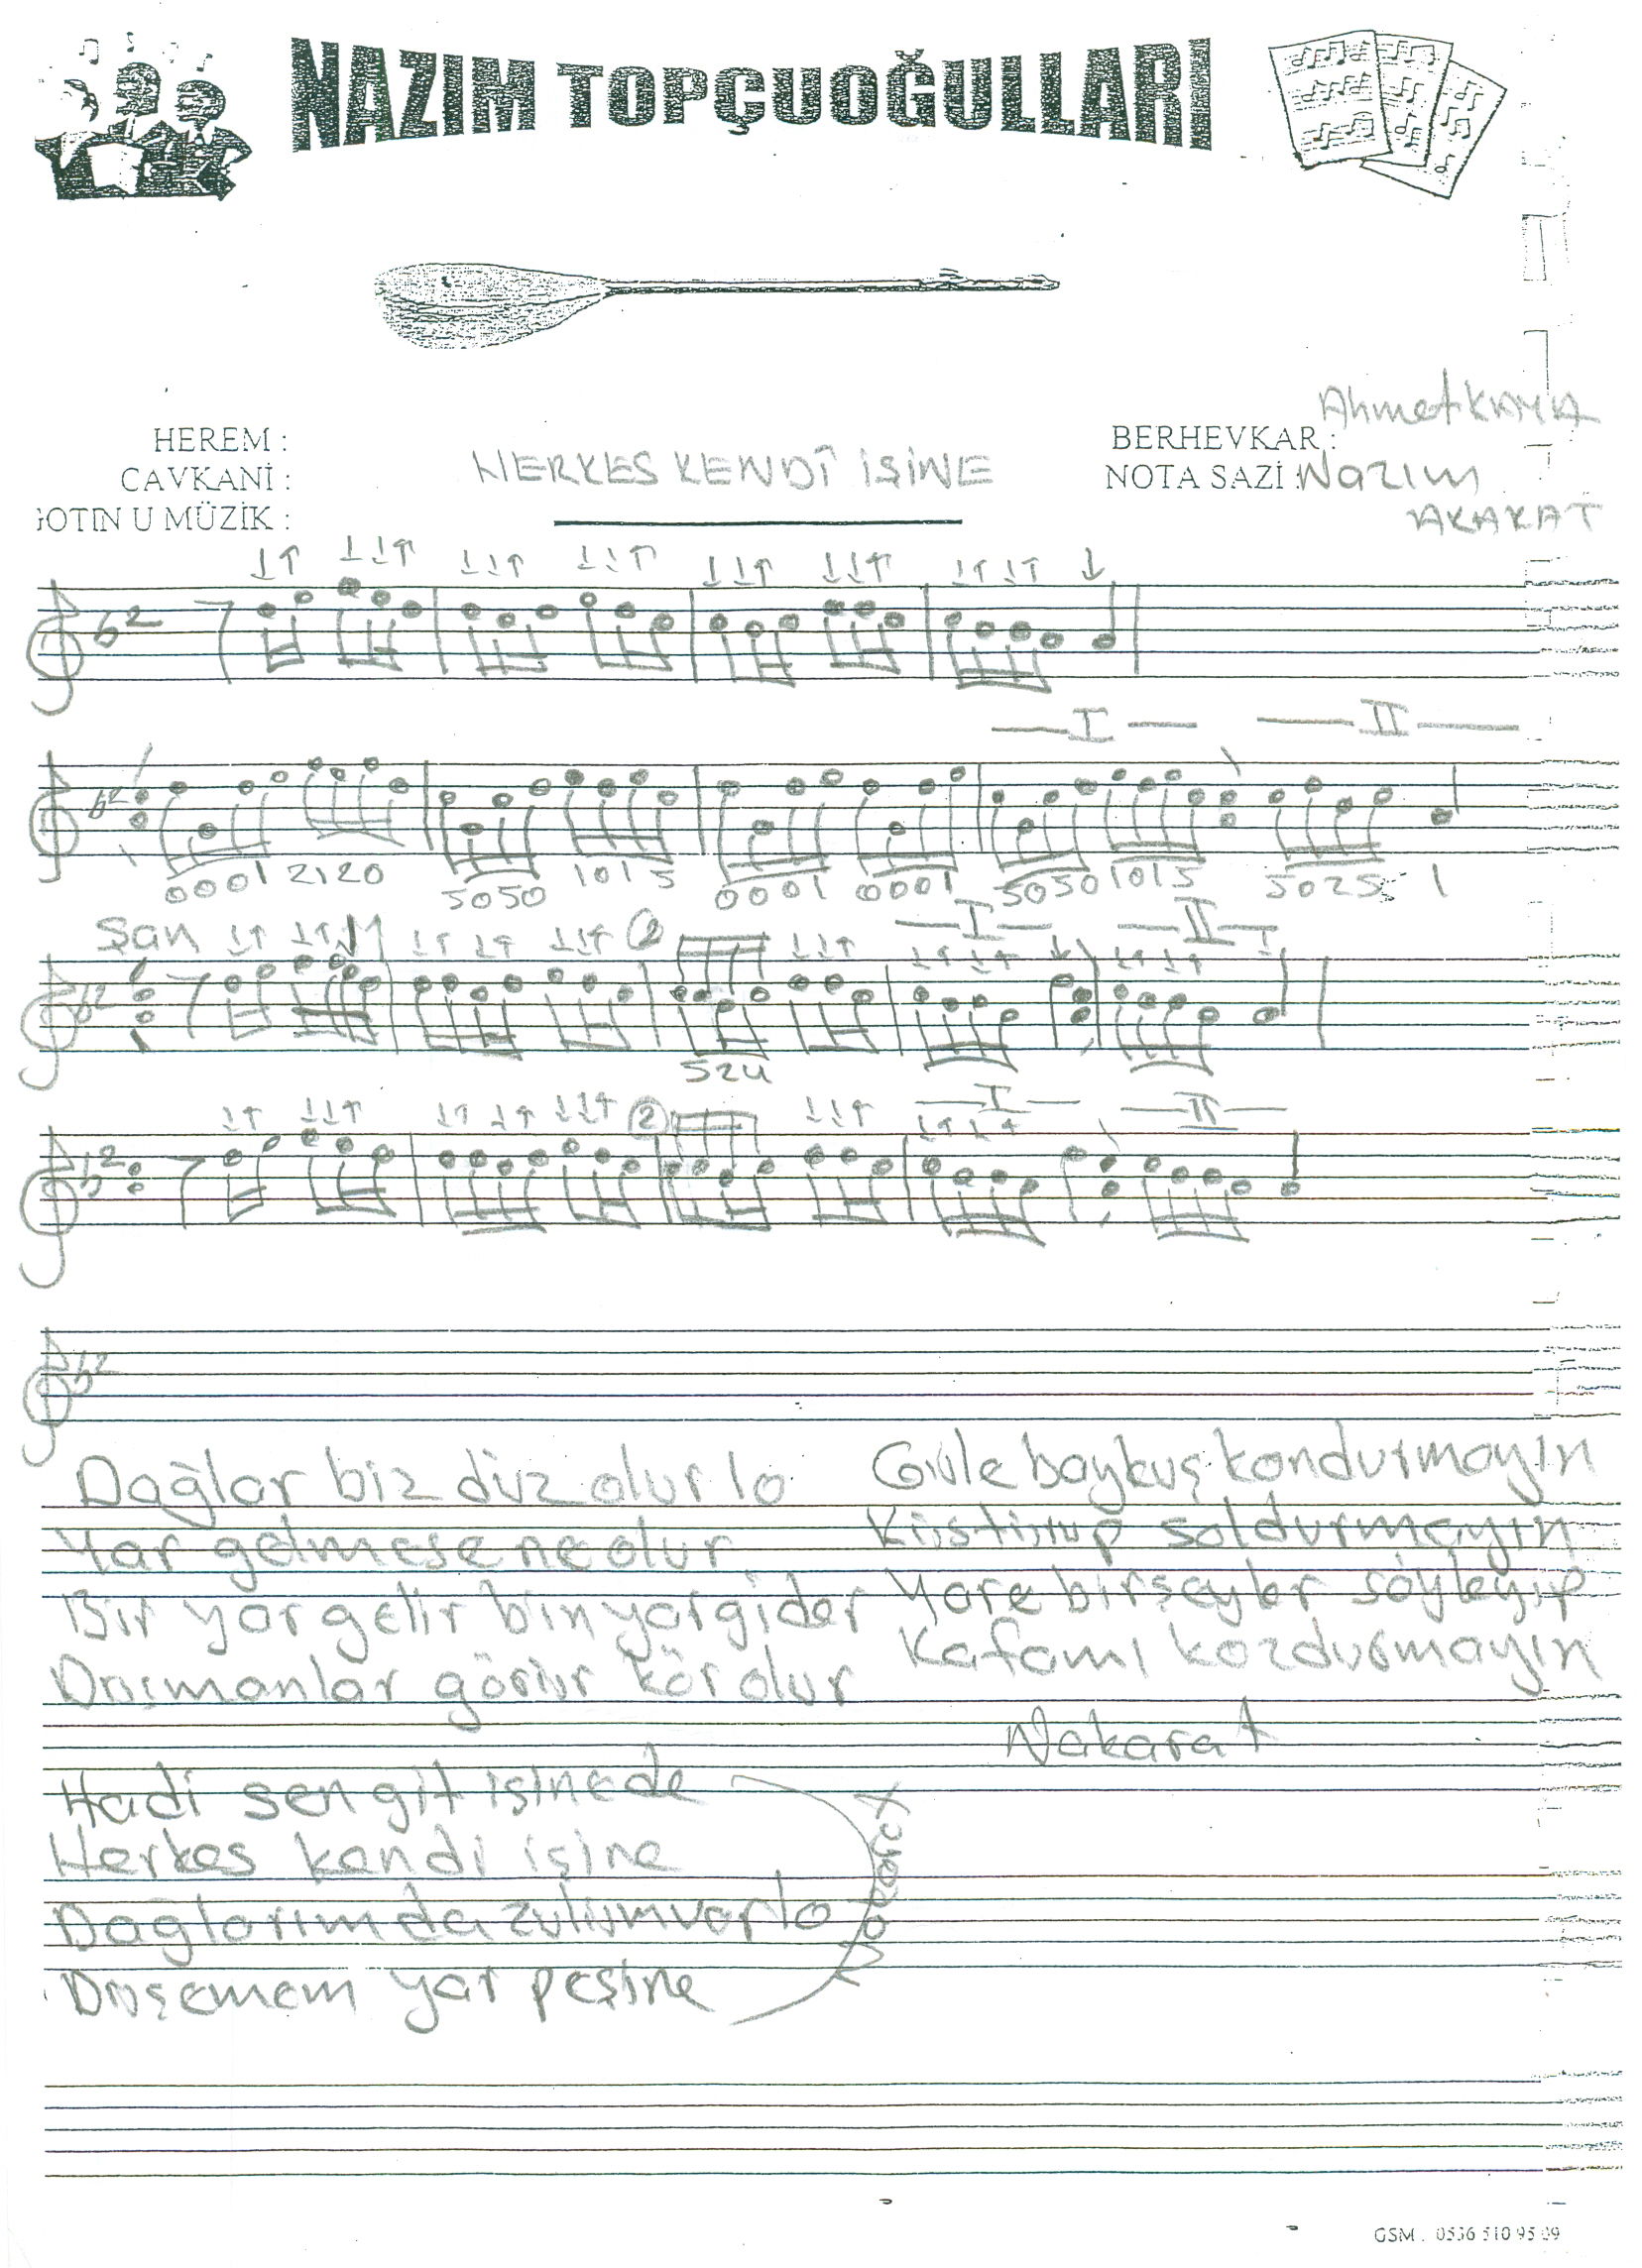 NAZIM TOPÇUOĞULLARI
HEREM :
CAVKANİ :
GOTIN U MÜZİK :
HERKES KENDÎ İŞİNE
BERHEVKAR : Ahmet KAYA
NOTA SAZİ : Nazım
AKAKAT
I II
0001 2120 5050 1015 0001 0001 5050 1015 5025 1
Şan 2 I II
524
2 I II
Dağlar biz düz olur lo
Yar gelmese ne olur
Bir yar gelir bin yar gider
Düşmanlar görür kör olur
Hadi sen git işine de
Herkes kendi işine
Dağlarımda zulüm var lo
Düşemem yar peşine
Nakarat
Güle baykuş kondurmayın
Küstürüp soldurmayın
Yare birşeyler söyleyip
Kafamı kozdurmayın
Nakarat
GSM . 0536 510 95 09